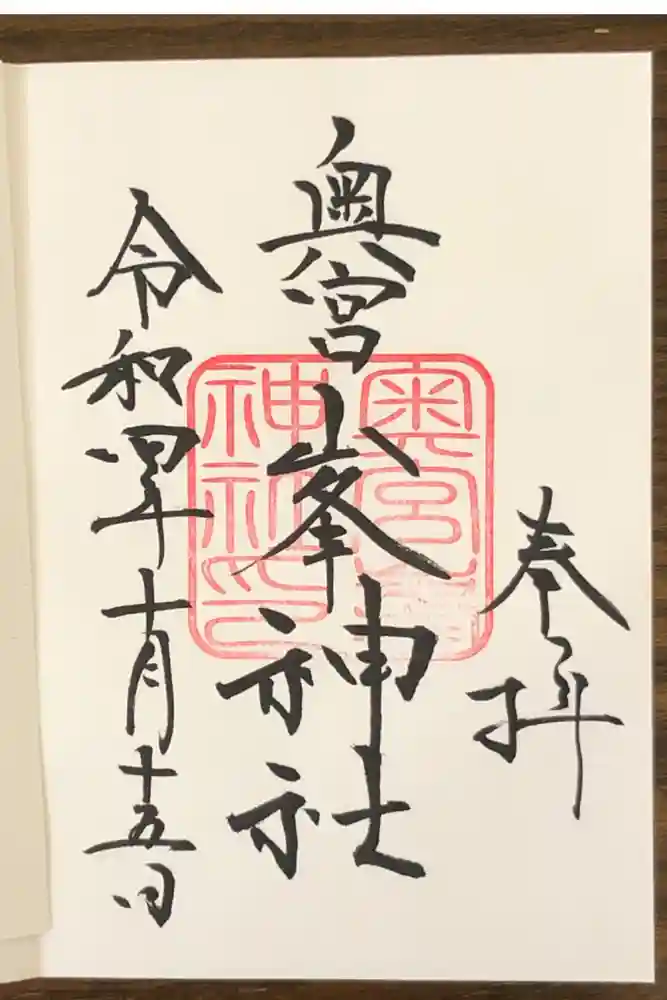 奉拝
奥宮峯神社
令和四年十月十五日
奥宮峯
神社印